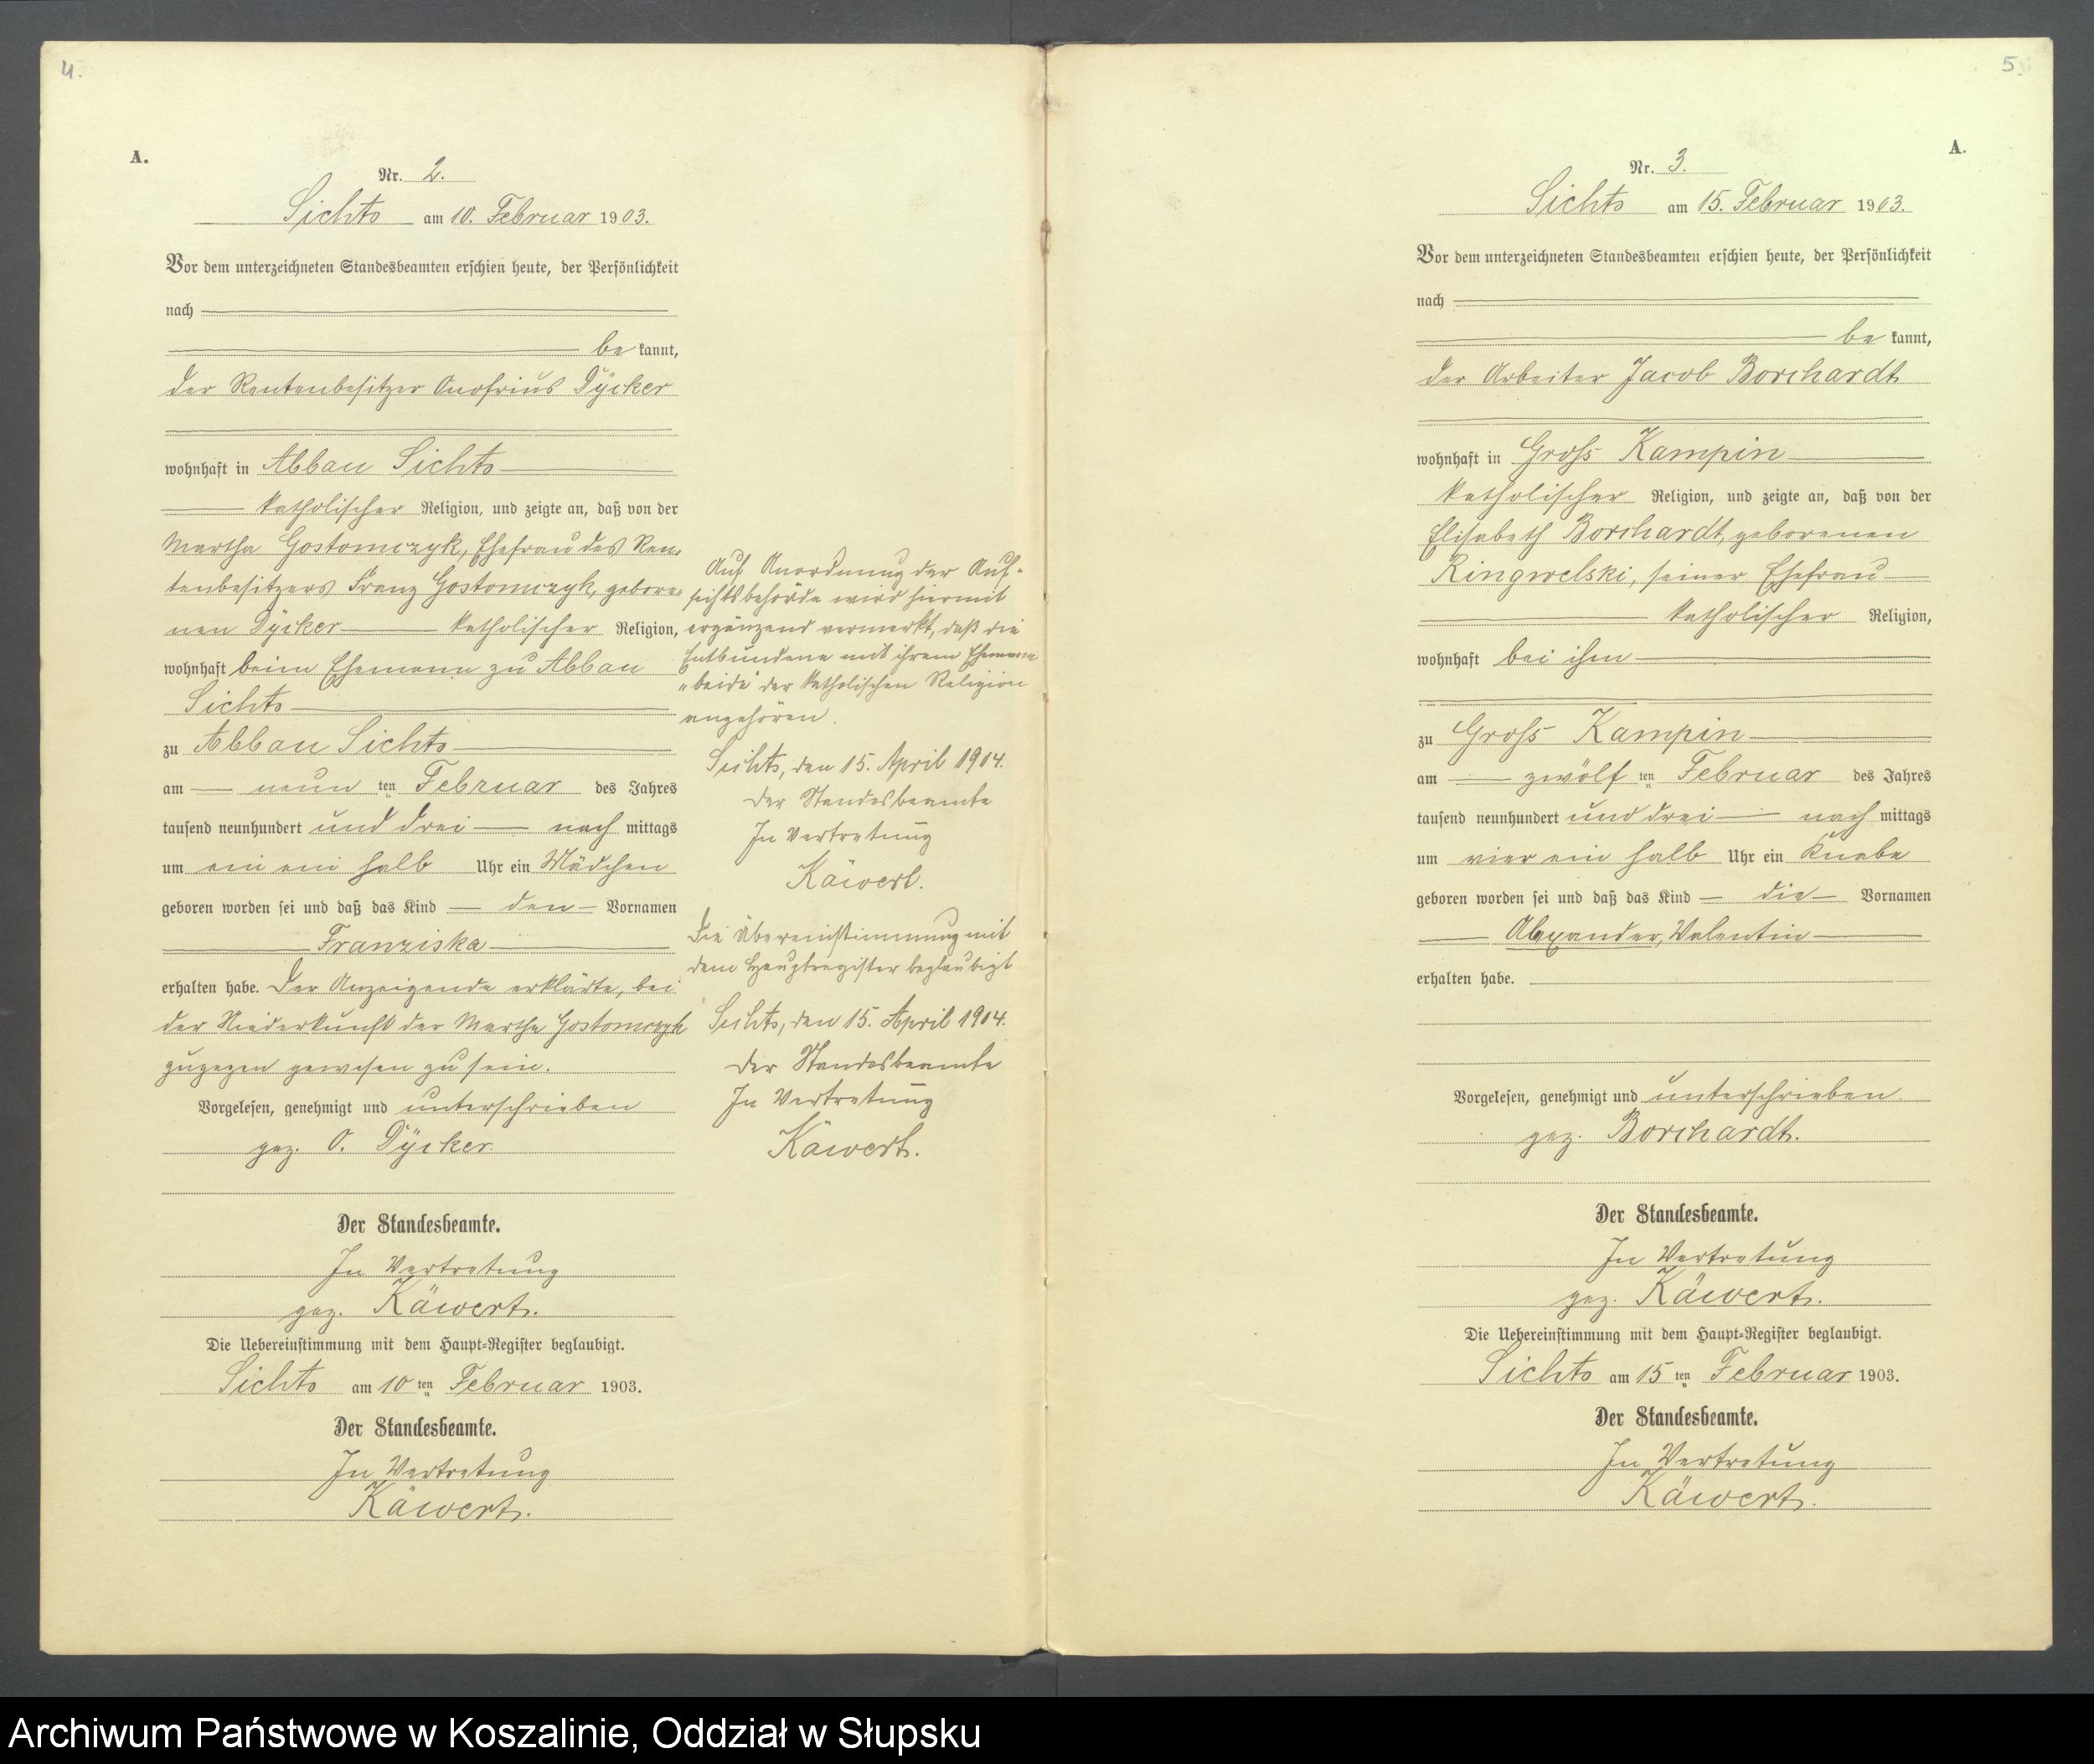 4.
A.
Nr. 2.
Sichts am 10. Februar 1903.
Vor dem unterzeichneten Standesbeamten erschien heute, der Persönlichkeit
nach
be kannt,
der Rentenbesitzer Onofrius Dÿcker
wohnhaft in Abbau Sichts
katholischer Religion, und zeigte an, daß von der
Martha Gostomczyk, Ehefrau des Ren-
tenbesitzers Franz Gostomczyk, gebore-
nen Dÿcker katholischer Religion,
wohnhaft beim Ehemann zu Abbau
Sichts
zu Abbau Sichts
am neun ten Februar des Jahres
tausend neunhundert und drei nach mittags
um ein ein halb Uhr ein Mädchen
geboren worden sei und daß das Kind den Vornamen
Franziska
erhalten habe. Der Anzeigende erklärte, bei
der Niederkunft der Martha Gostomczyk
zugegen gewesen zu sein.
Vorgelesen, genehmigt und unterschrieben
gez. O. Dÿcker.
Der Standesbeamte.
In Vertretung
gez. Käwert.
Die Uebereinstimmung mit dem Haupt-Register beglaubigt.
Sichts am 10 ten Februar 1903.
Der Standesbeamte.
In Vertretung
Käwert.
Auf Anordnung der Auf-
sichtsbehörde wird hiermit
ergänzend vermerkt, daß die
Entbundene mit ihrem Ehemann
"beide" der katholischen Religion
angehören.
Sichts, den 15. April 1904.
Der Standesbeamte
In Vertretung
Käwert.
Die Übereinstimmung mit
dem Hauptregister beglaubigt
Sichts, den 15. April 1904.
Der Standesbeamte
In Vertretung
Käwert.
5
A.
Nr. 3.
Sichts am 15. Februar 1903.
Vor dem unterzeichneten Standesbeamten erschien heute, der Persönlichkeit
nach
be kannt,
der Arbeiter Jacob Borchardt
wohnhaft in Groß Kampin
katholischer Religion, und zeigte an, daß von der
Elisabeth Borchardt, geborenen
Ringwelski, seiner Ehefrau
katholischer Religion,
wohnhaft bei ihm
zu Groß Kampin
am zwölf ten Februar des Jahres
tausend neunhundert und drei nach mittags
um vier ein halb Uhr ein Knabe
geboren worden sei und daß das Kind die Vornamen
Alexander, Valentin
erhalten habe.
Vorgelesen, genehmigt und unterschrieben.
gez. Borchardt.
Der Standesbeamte.
In Vertretung
gez. Käwert.
Die Uebereinstimmung mit dem Haupt-Register beglaubigt.
Sichts am 15 ten Februar 1903.
Der Standesbeamte.
In Vertretung
Käwert.
Archiwum Państwowe w Koszalinie, Oddział w Słupsku